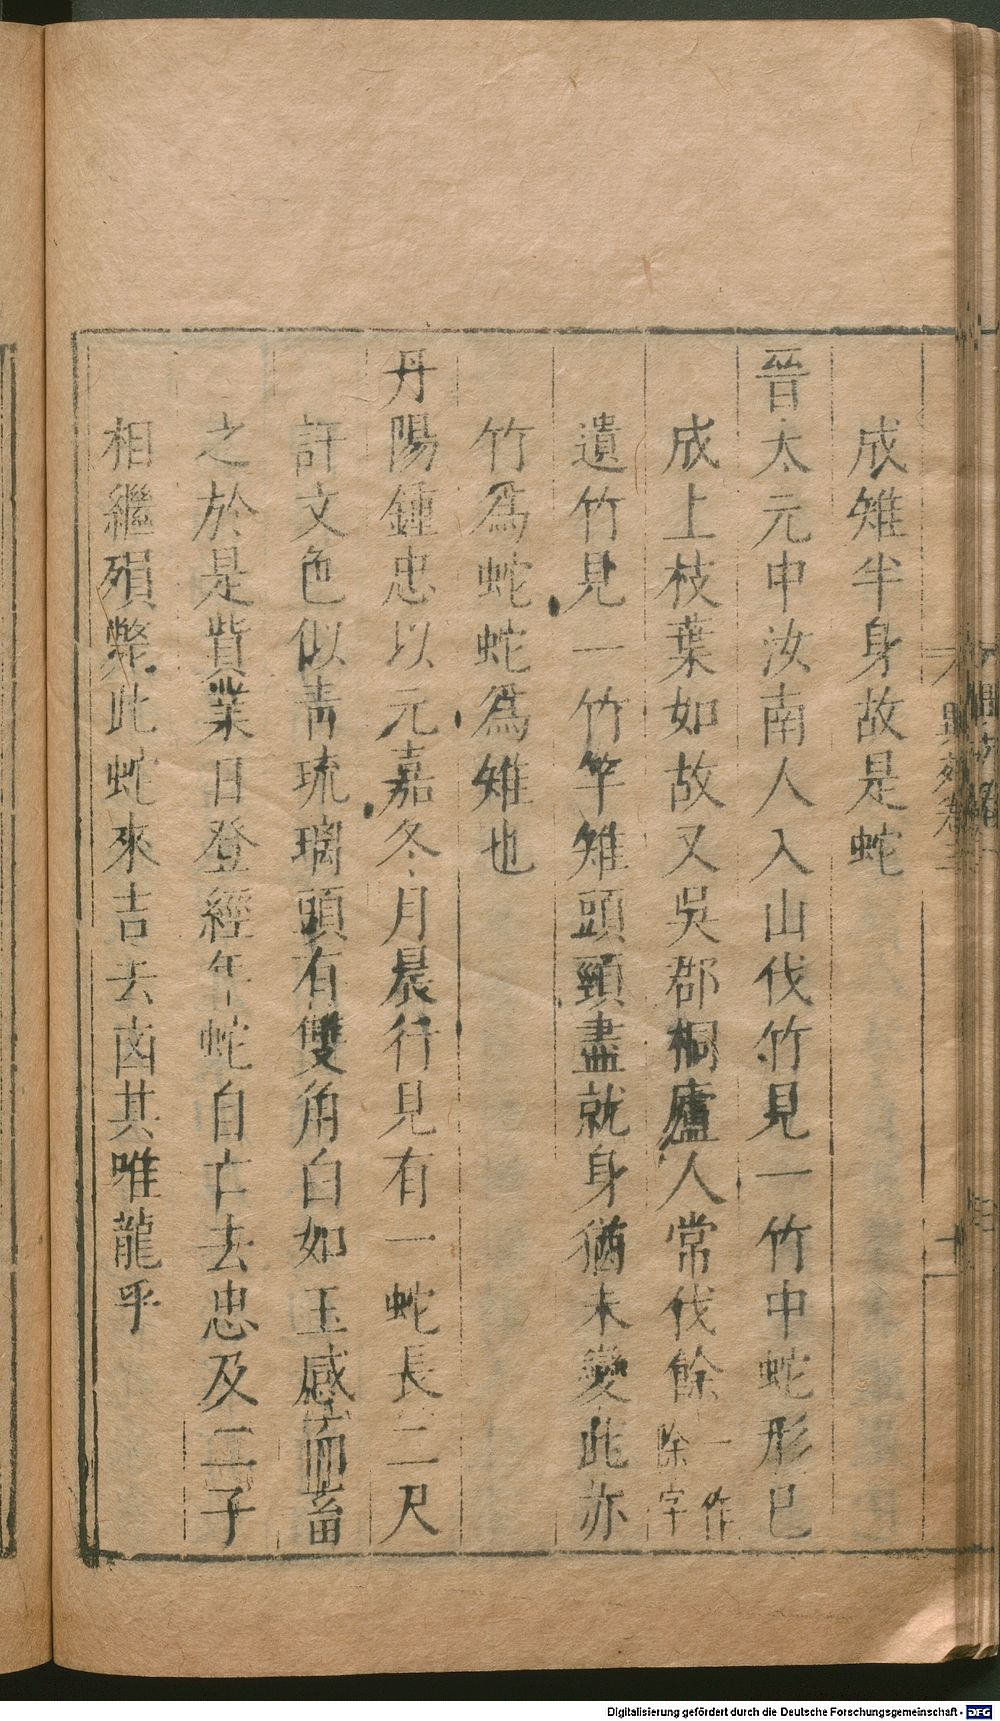 成雉半身故是蛇
晉太元中汝南人入山伐竹見一竹中蛇形已
成上枝葉如故又吳郡桐廬人常伐餘一作除字
遺竹見一竹竿雉頭頸盡就身猶未變此亦
竹爲蛇蛇爲雉也
丹陽鍾忠以元嘉冬月晨行見有一蛇長二尺
許文色似青琉璃頭有雙角白如玉感而畜
之於是貲業日登經年蛇自亡去忠及二子
相繼殞斃此蛇來吉去凶其唯龍乎
Digitalisierung gefördert durch die Deutsche Forschungsgemeinschaft - DFG